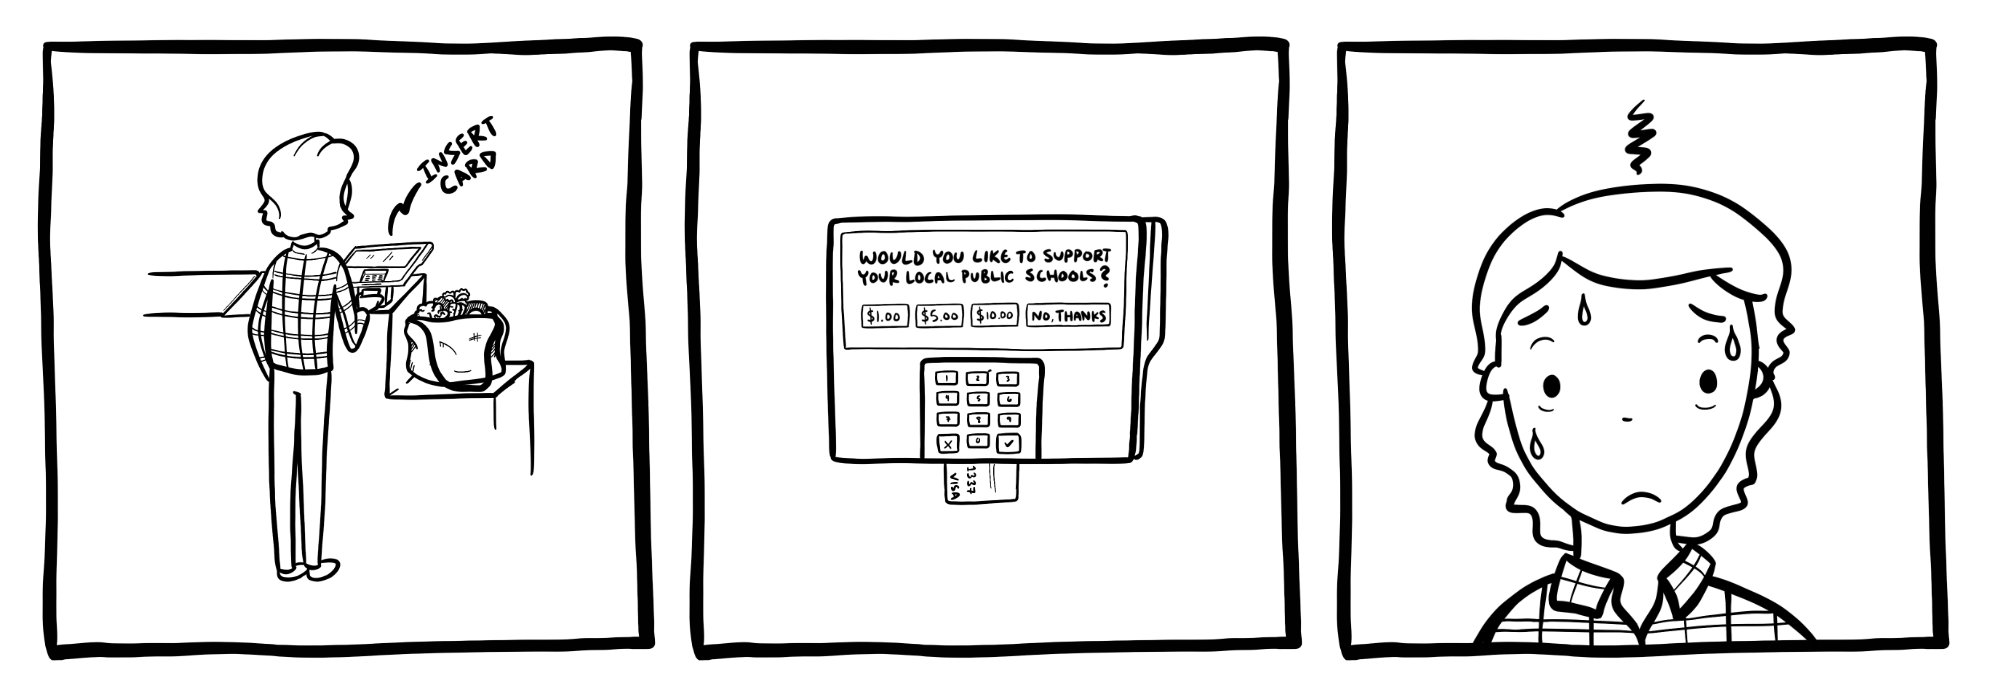 INSERT
CARD
WOULD YOU LIKE TO SUPPORT
YOUR LOCAL PUBLIC SCHOOLS?
$1.00 $5.00 $10.00 NO, THANKS
1 2 3
4 5 6
7 8 9
X 0 ✓
1337
VISA